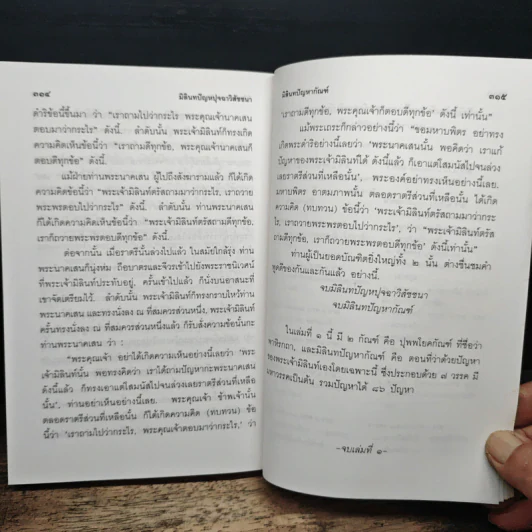 ๓๑๔
มิลินทปัญหปุจฉาวิสัชชนา
ดำริข้อนี้ขึ้นมา ว่า "เราถามไปว่ากระไร พระคุณเจ้านาคเสน
ตอบมาว่ากระไร" ดังนี้. ลำดับนั้น พระเจ้ามิลินท์ก็ทรงเกิด
ความคิดเห็นข้อนี้ว่า "เราถามดีทุกข้อ, พระคุณเจ้านาคเสนก็
ตอบดีทุกข้อ" ดังนี้.
แม้ฝ่ายท่านพระนาคเสน ผู้ไปถึงสังฆารามแล้ว ก็ได้เกิด
ความคิดข้อนี้ว่า "พระเจ้ามิลินท์ตรัสถามมาว่ากระไร, เราถวาย
พระพรตอบไปว่ากระไร" ดังนี้. ลำดับนั้น ท่านพระนาคเสน
ก็ได้เกิดความคิดเห็นข้อนี้ว่า "พระเจ้ามิลินท์ตรัสถามดีทุกข้อ,
เราก็ถวายพระพรตอบดีทุกข้อ" ดังนี้.
ต่อจากนั้น เมื่อราตรีนั้นล่วงไปแล้ว ในสมัยใกล้รุ่ง ท่าน
พระนาคเสนก็นุ่งห่ม ถือบาตรและจีวรเข้าไปยังพระราชนิเวศน์
ที่พระเจ้ามิลินท์ประทับอยู่, ครั้นเข้าไปแล้ว ก็นั่งบนอาสนะที่
เขาจัดเตรียมไว้. ลำดับนั้น พระเจ้ามิลินท์ก็ทรงกราบไหว้ท่าน
พระนาคเสน และทรงนั่งลง ณ ที่สมควรส่วนหนึ่ง, พระเจ้ามิลินท์
ครั้นทรงนั่งลง ณ ที่สมควรส่วนหนึ่งแล้ว ก็รับสั่งความข้อนั้นกะ
ท่านพระนาคเสน ว่า :
"พระคุณเจ้า อย่าได้เกิดความเห็นอย่างนี้เลยว่า 'พระ
เจ้ามิลินท์นั้น พอทรงคิดว่า เราได้ถามปัญหากะพระนาคเสน
ดังนี้แล้ว ก็ทรงเอาแต่โสมนัสไปจนล่วงเลยราตรีส่วนที่เหลือ
นั้น', ท่านอย่าเห็นอย่างนี้เลย. พระคุณเจ้า ข้าพเจ้านั้น
ตลอดราตรีส่วนที่เหลือนั้น ก็ได้เกิดความคิด (ทบทวน) ข้อ
นี้ว่า 'เราถามไปว่ากระไร, พระคุณเจ้าตอบมาว่ากระไร,' ว่า
มิลินทปัญหากัณฑ์
๓๑๕
'เราถามดีทุกข้อ, พระคุณเจ้าก็ตอบดีทุกข้อ' ดังนี้ เท่านั้น"
แม้พระเถระก็กล่าวอย่างนี้ว่า "ขอมหาบพิตร อย่าทรง
เกิดพระดำริอย่างนี้เลยว่า 'พระนาคเสนนั้น พอคิดว่า เราแก้
ปัญหาของพระเจ้ามิลินท์ได้ ดังนี้แล้ว ก็เอาแต่โสมนัสไปจนล่วง
เลยราตรีส่วนที่เหลือนั้น', พระองค์อย่าทรงเห็นอย่างนี้เลย.
มหาบพิตร อาตมภาพนั้น ตลอดราตรีส่วนที่เหลือนั้น ได้เกิด
ความคิด (ทบทวน) ข้อนี้ว่า 'พระเจ้ามิลินท์ตรัสถามมาว่ากระ
ไร, เราถวายพระพรตอบไปว่ากระไร', ว่า 'พระเจ้ามิลินท์ตรัส
ถามดีทุกข้อ, เราก็ถวายพระพรตอบดีทุกข้อ' ดังนี้เท่านั้น".
ท่านผู้เป็นยอดบัณฑิตยิ่งใหญ่ทั้ง ๒ นั้น ต่างชื่นชมคำ
พูดดีของกันและกันแล้ว อย่างนี้.
จบมิลินทปัญหปุจฉาวิสัชชนา
จบมิลินทปัญหากัณฑ์
ในเล่มที่ ๑ นี้ มี ๒ กัณฑ์ คือ ปุพพโยคกัณฑ์ ที่ชื่อว่า
พาหิรกถา, และมิลินทปัญหากัณฑ์ คือ ตอนที่ว่าด้วยปัญหา
ของพระเจ้ามิลินท์เองโดยเฉพาะนี้ ซึ่งประกอบด้วย ๗ วรรค มี
มหาวรรคเป็นต้น รวมปัญหาได้ ๘๖ ปัญหา
-จบเล่มที่ ๑-